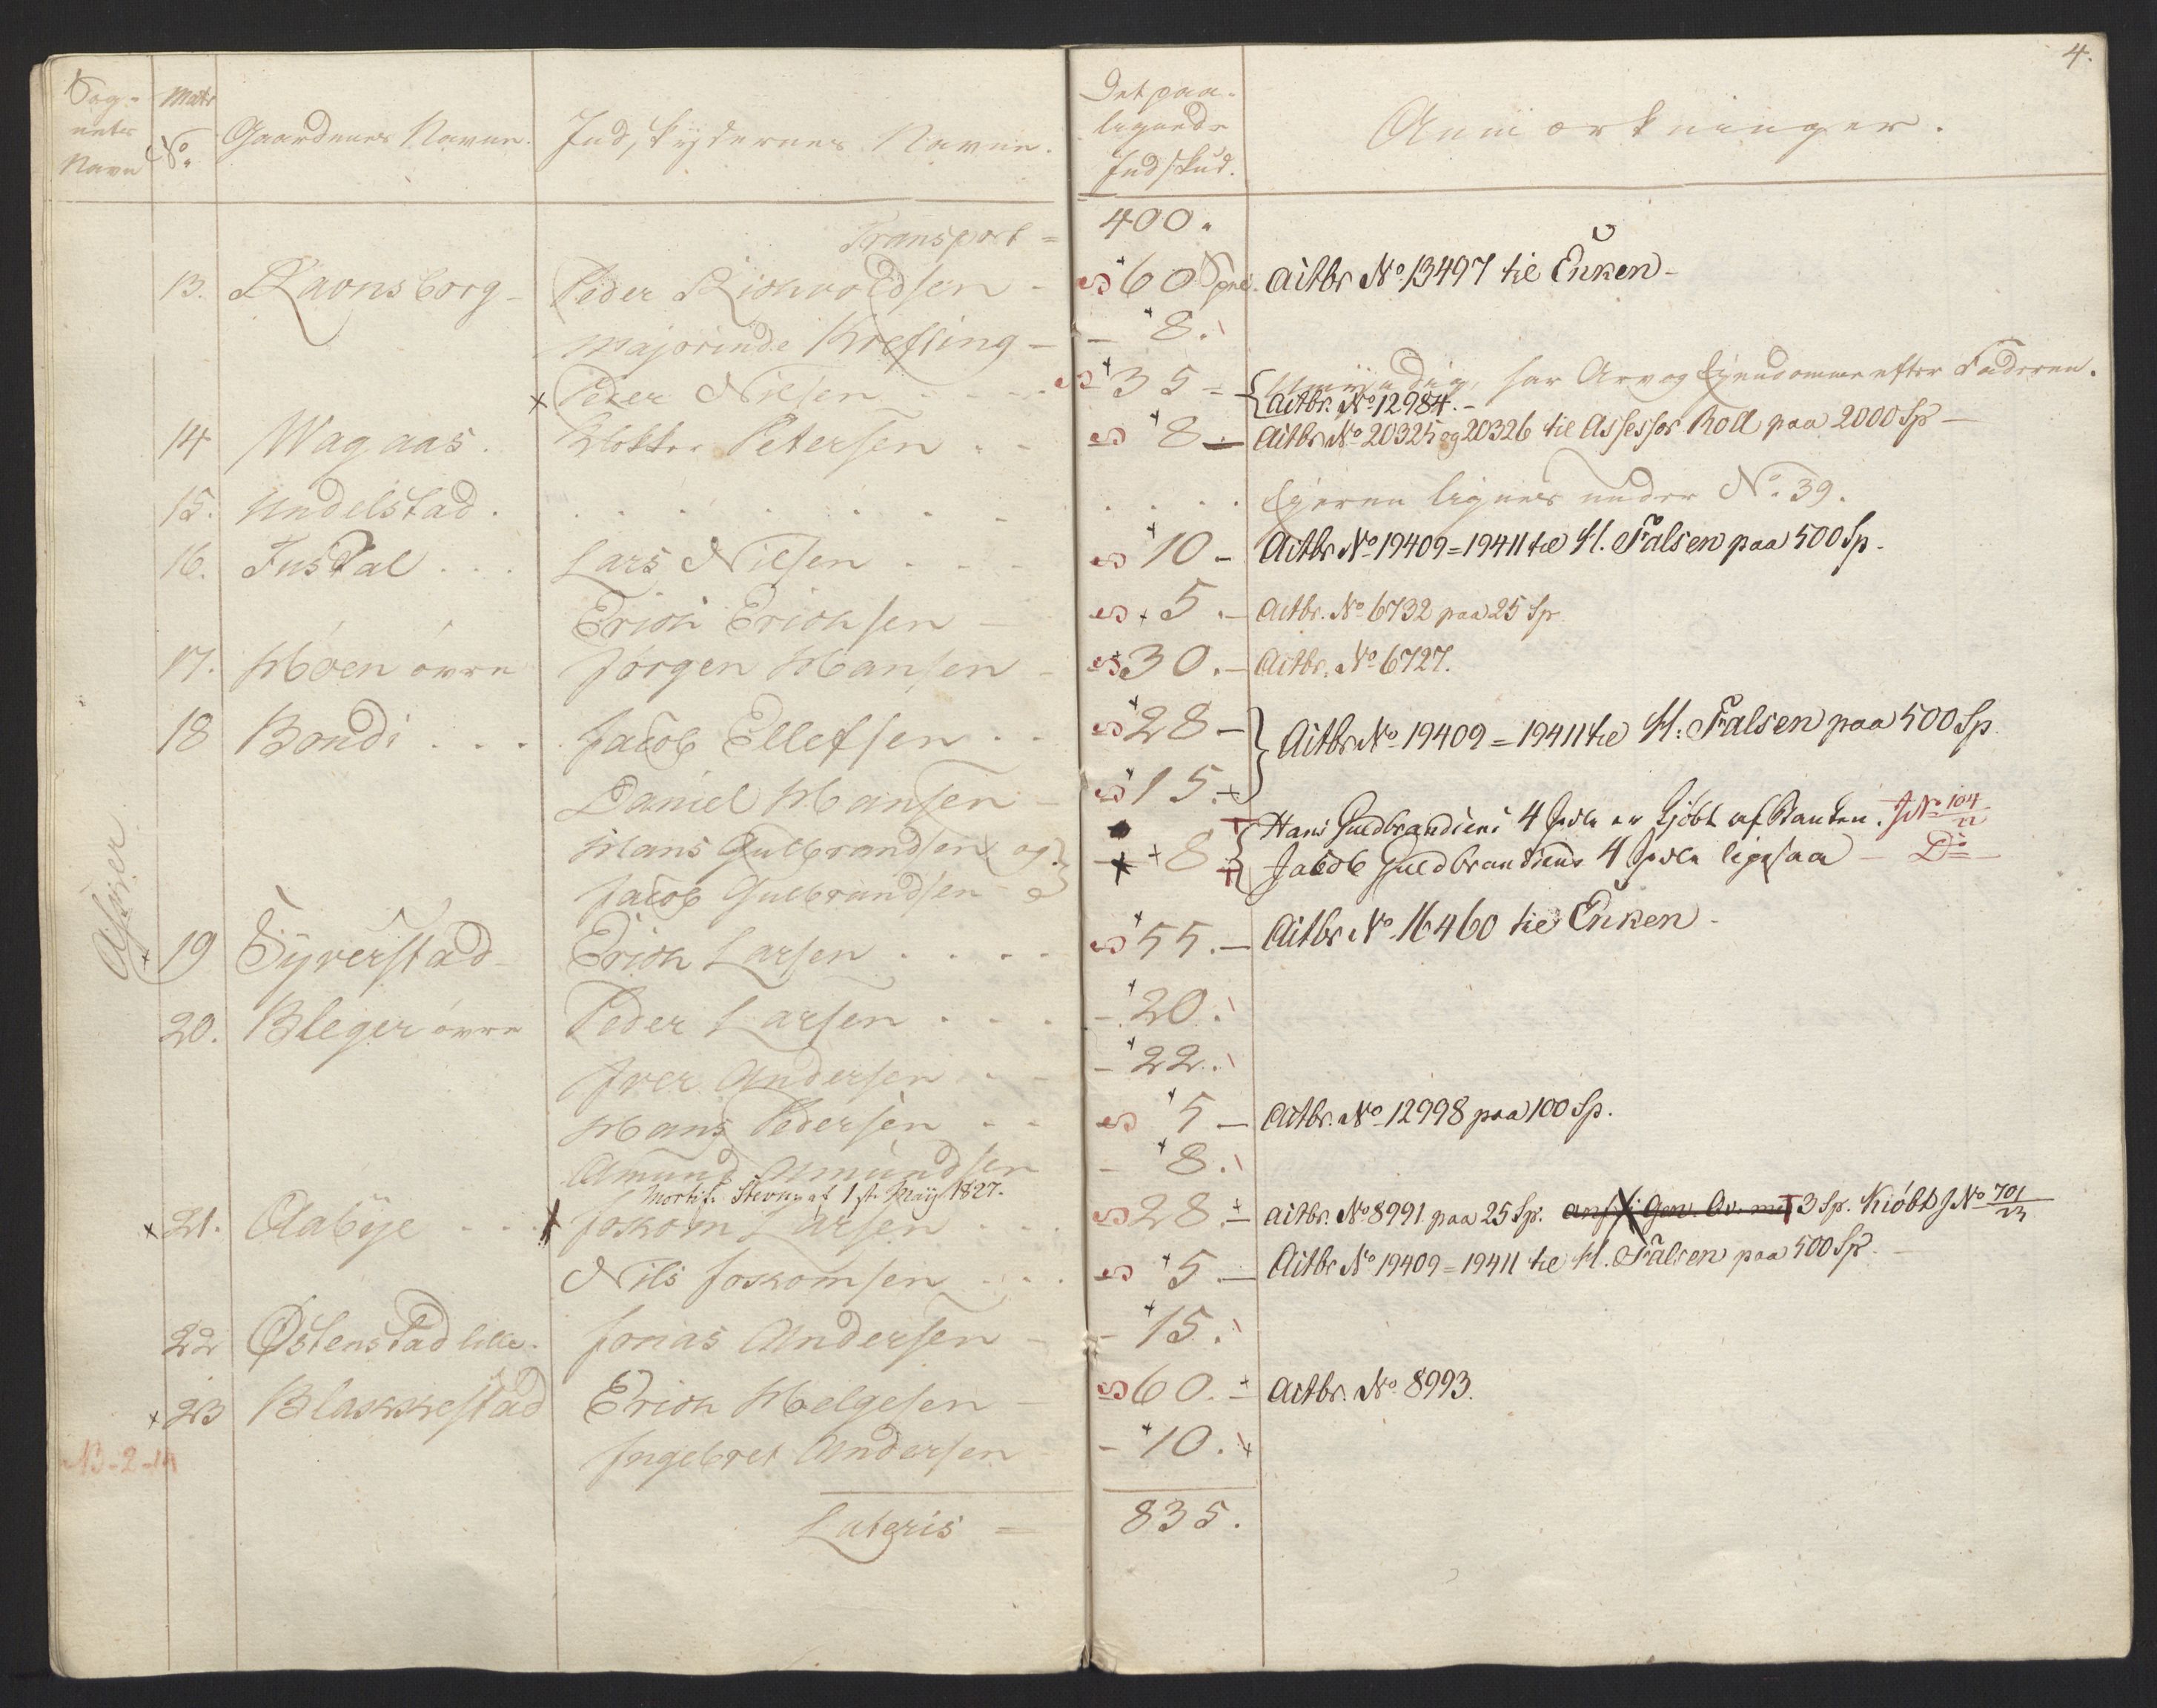 Sog-
nets
Navn
Matr
No.
Gaardenes Navne.
Indskydernes Navne.
Det paa-
lignede
Indskud.
Anmærkninger.
4.
Transport = 400.
13. Ravnsborg - Peder Richvoldsen - 60 Spd. Actbr No. 13497 til Enken -
Majorinde Krefting - 8.
x Peder Nielsen - 35 - Umyndig, har Arv og Ejendomme efter Faderen.
Actbr. No 12984. -
14 Wagaas. Petersen - - 8 - Actbr No 20325 og 20326 til Assessor Roll paa 2000 Sp -
15. Undelstad. . . . . Ejeren lignes under No. 39.
16. Fusdal . . . Lars Nielsen . . . 10 - Actbr No 19409 = 19411 til H. Falsen paa 500 Sp.
Erich Erichsen - 5 . - Actbr. No 6732 paa 25 Sp
17. Hoen øvre Jørgen Hansen - 30 . - Actbr. No 6727.
18 Bondi . . . Jacob Ellefsen . . 28 - Actbr No 19409 = 19411 til H. Falsen paa 500 Sp.
Daniel Hansen - 15.
Hans Gulbrandsen og 8 Hans Guldbrandsens 4 Spdlr er kjøbt af Banken. J No 104/22
Jacob Gulbrandsen Jacob Guldbrandsens 4 Spdlr ligesaa - Do -
Asker
19 Syverstad - Erich Larsen . . . . 55. - Actbr No 16460 til Enken -
20. Bleger øvre Peder Larsen . . . 20.
Iver Andersen . . 22.
Hans Pedersen - - 5 - Actbr. No 12998 paa 100 Sp.
Amund Amundsen - 8.
Mortif. Stevng af 1ste Maij 1827.
x 21. Olabye . . . x Joskom Larsen . . . 28. Actbr. No 8991 paa 25 Sp. 3 Sp. Kiøbt J No 701/23
Nils Joskomsen . . . 5 - Actbr No 19409 = 19411 til H. Falsen paa 500 Sp.
22 Østenstad lille. Jonas Andersen - 15.
x 23 Blakkestad Erich Helgesen - 60. Actbr. No 8993.
Ingebret Andersen - 10.
Lateris = 835.